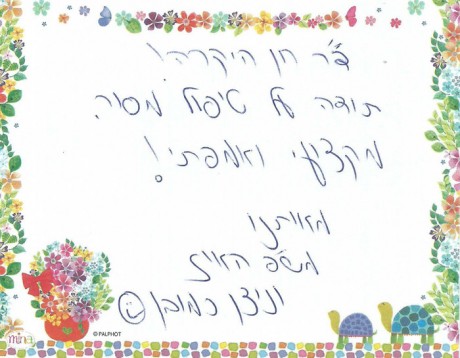 ד"ר חן היקרה!
תודה על טיפול מסור,
מקצועי ואמפתי!
מאיתנו
משפ'
וניצן כמובן
© PALPHOT
mina